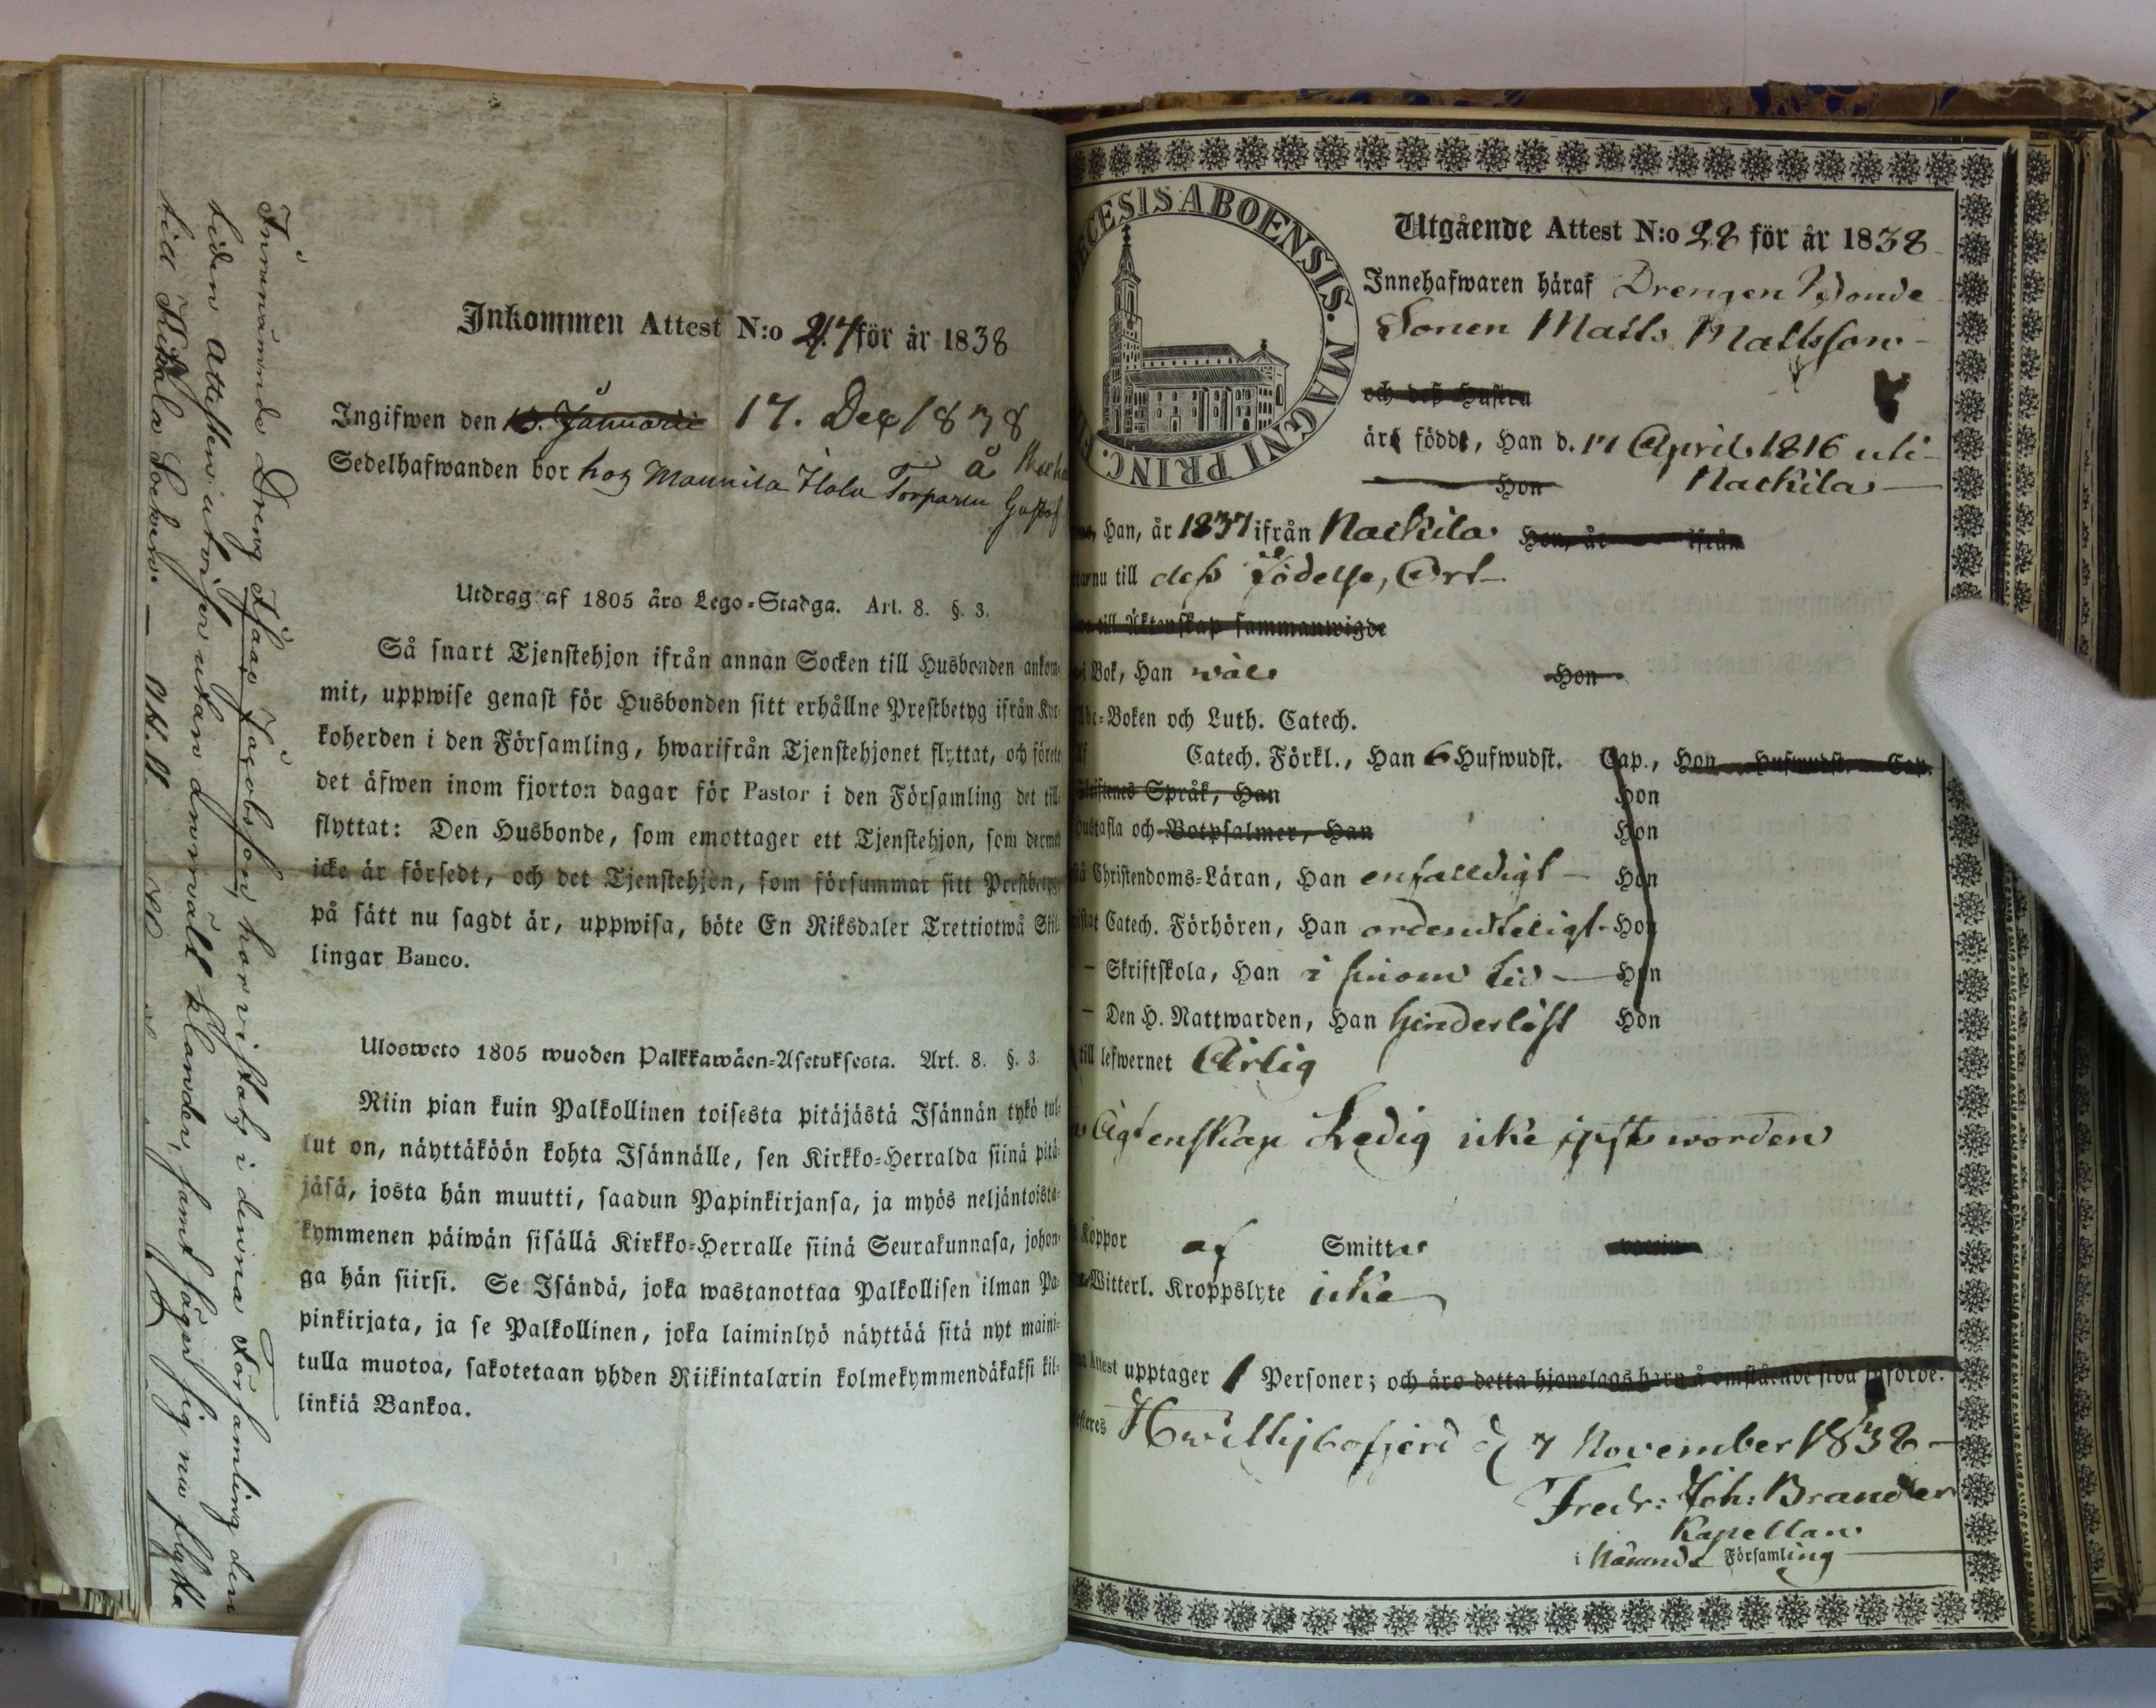 Innevarnde Dreng Isaac Jacobsson, har vistats i denna Församling den
tiden Attesten utviser utan anmäldt klander, samt säger sig nu flytta
till Kjukala Socken. —
Inkommen Attest N:o 217 för år 1838
Ingifwen den 10. Januarii 17. Dec 1838
Sedelhafwanden bor hos Mannila Ilola Torparen Gustaf
å
Utdrag af 1805 års Lego-Stadga. Art. 8. §. 3.
Så snart Tjenstehjon ifrån annan Socken till Husbonden ankom-
mit, uppwise genast för Husbonden sitt erhållne Prestbetyg ifrån Kyr-
koherden i den Församling, hwarifrån Tjenstehjonet flyttat, och förete
det äfwen inom fjorton dagar för Pastor i den Församling det till-
flyttat: Den Husbonde, som emottager ett Tjenstehjon, som dermed
icke är försedt, och det Tjenstehjon, som försummar sitt Prestbetyg
på sätt nu sagdt är, uppwisa, böte En Riksdaler Trettiotwå Skil-
lingar Banco.
Ulosweto 1805 wuoden Palkkawäen-Asetuksesta. Art. 8. §. 3.
Niin pian kuin Palkollinen toisesta pitäjästä Isännän tykö tul-
lut on, näyttäköön kohta Isännälle, sen Kirkko-Herralda siinä pitä-
jäsä, josta hän muutti, saadun Papinkirjansa, ja myös neljäntoista-
kymmenen päiwän sisällä Kirkko-Herralle siinä Seurakunnasa, johon-
ga hän siirsi. Se Isändä, joka wastanottaa Palkollisen ilman Pa-
pinkirjata, ja se Palkollinen, joka laiminlyö näyttää sitä nyt maini-
tulla muotoa, sakotetaan yhden Riikintalarin kolmekymmendäkaksi kil-
linkiä Bankoa.
ECESIS ABOENSIS. MAGNI PRINC. F
Utgående Attest N:o 28 för år 1838
Innehafwaren häraf Drengen Bonde
Sonen Matts Mattsson
och deß Hustru
äro född, Han d. 17 April 1816 uti
Hon Nackila
Han, år 1837 ifrån Nackila Hon, år ifrån
nu till deß Födelse Ort
till Äktenskap sammanwigde
i Bok, Han wäl Hon
Abc-Boken och Luth. Catech.
Af Catech. Förkl., Han 6 Hufwudst. Cap., Hon Hufwudst. Cap.
Skriftenes Språk, Han Hon
Hustafla och Botpsalmer, Han Hon
Christendoms-Läran, Han enfalldigt Hon
Catech. Förhören, Han ordenteligt Hon
— Skriftskola, Han i sinom tid Hon
— Den H. Nattwarden, Han hinderlöst Hon
till lefwernet Ärlig
Ägtenskap Ledig icke fäste worden
Koppor af Smitta warin
Witterl. Kroppslyte icke
Attest upptager 1 Personer; och äro detta hjonelags barn å omstående sida införde.
Hwittisbofjerd d 7 November 1838
Fredr: Joh: Brander
Kapellan
i Nämnde Församling